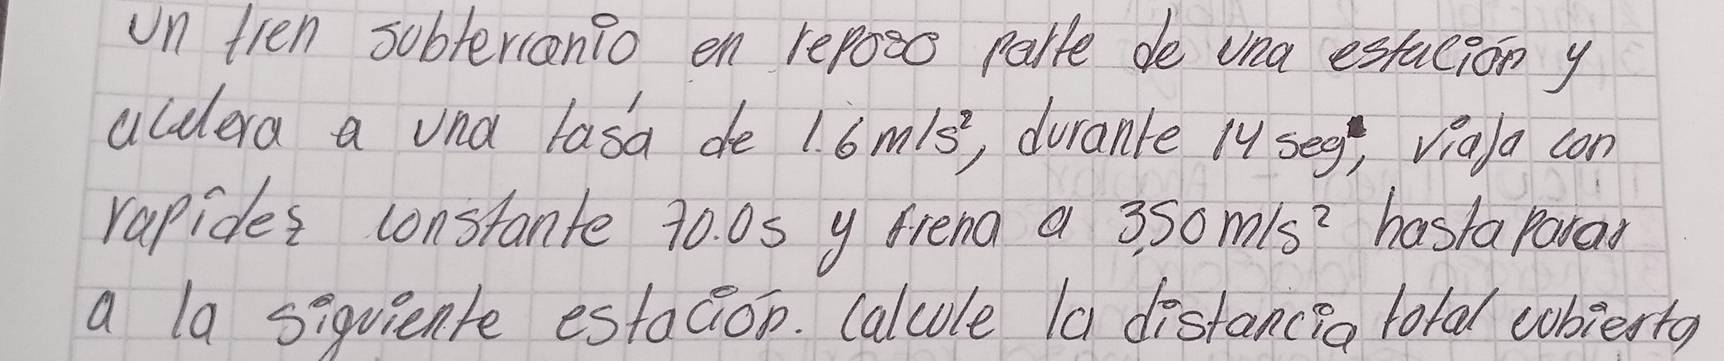 Un tren subterranio en reposo parte de una estación y
acelera a una tasa de 1.6 m/s², durante 14 seg, viaja con
rapidez constante 70.0s y frena a 3.50 m/s² hasta parar
a la siguiente estación. Calcule la distancia total cubierta